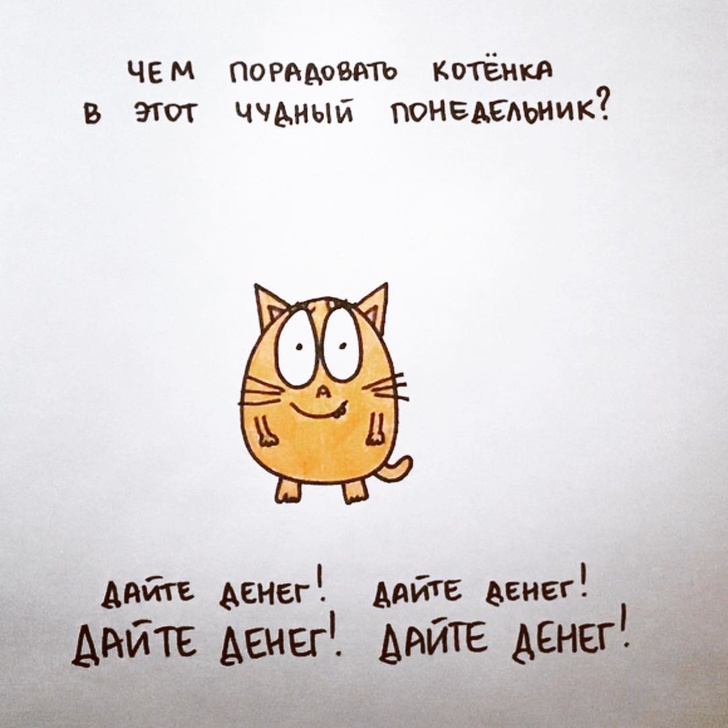 ЧЕМ ПОРАДОВАТЬ КОТЁНКА
В ЭТОТ ЧУДНЫЙ ПОНЕДЕЛЬНИК?
ДАЙТЕ ДЕНЕГ! ДАЙТЕ ДЕНЕГ!
ДАЙТЕ ДЕНЕГ! ДАЙТЕ ДЕНЕГ!